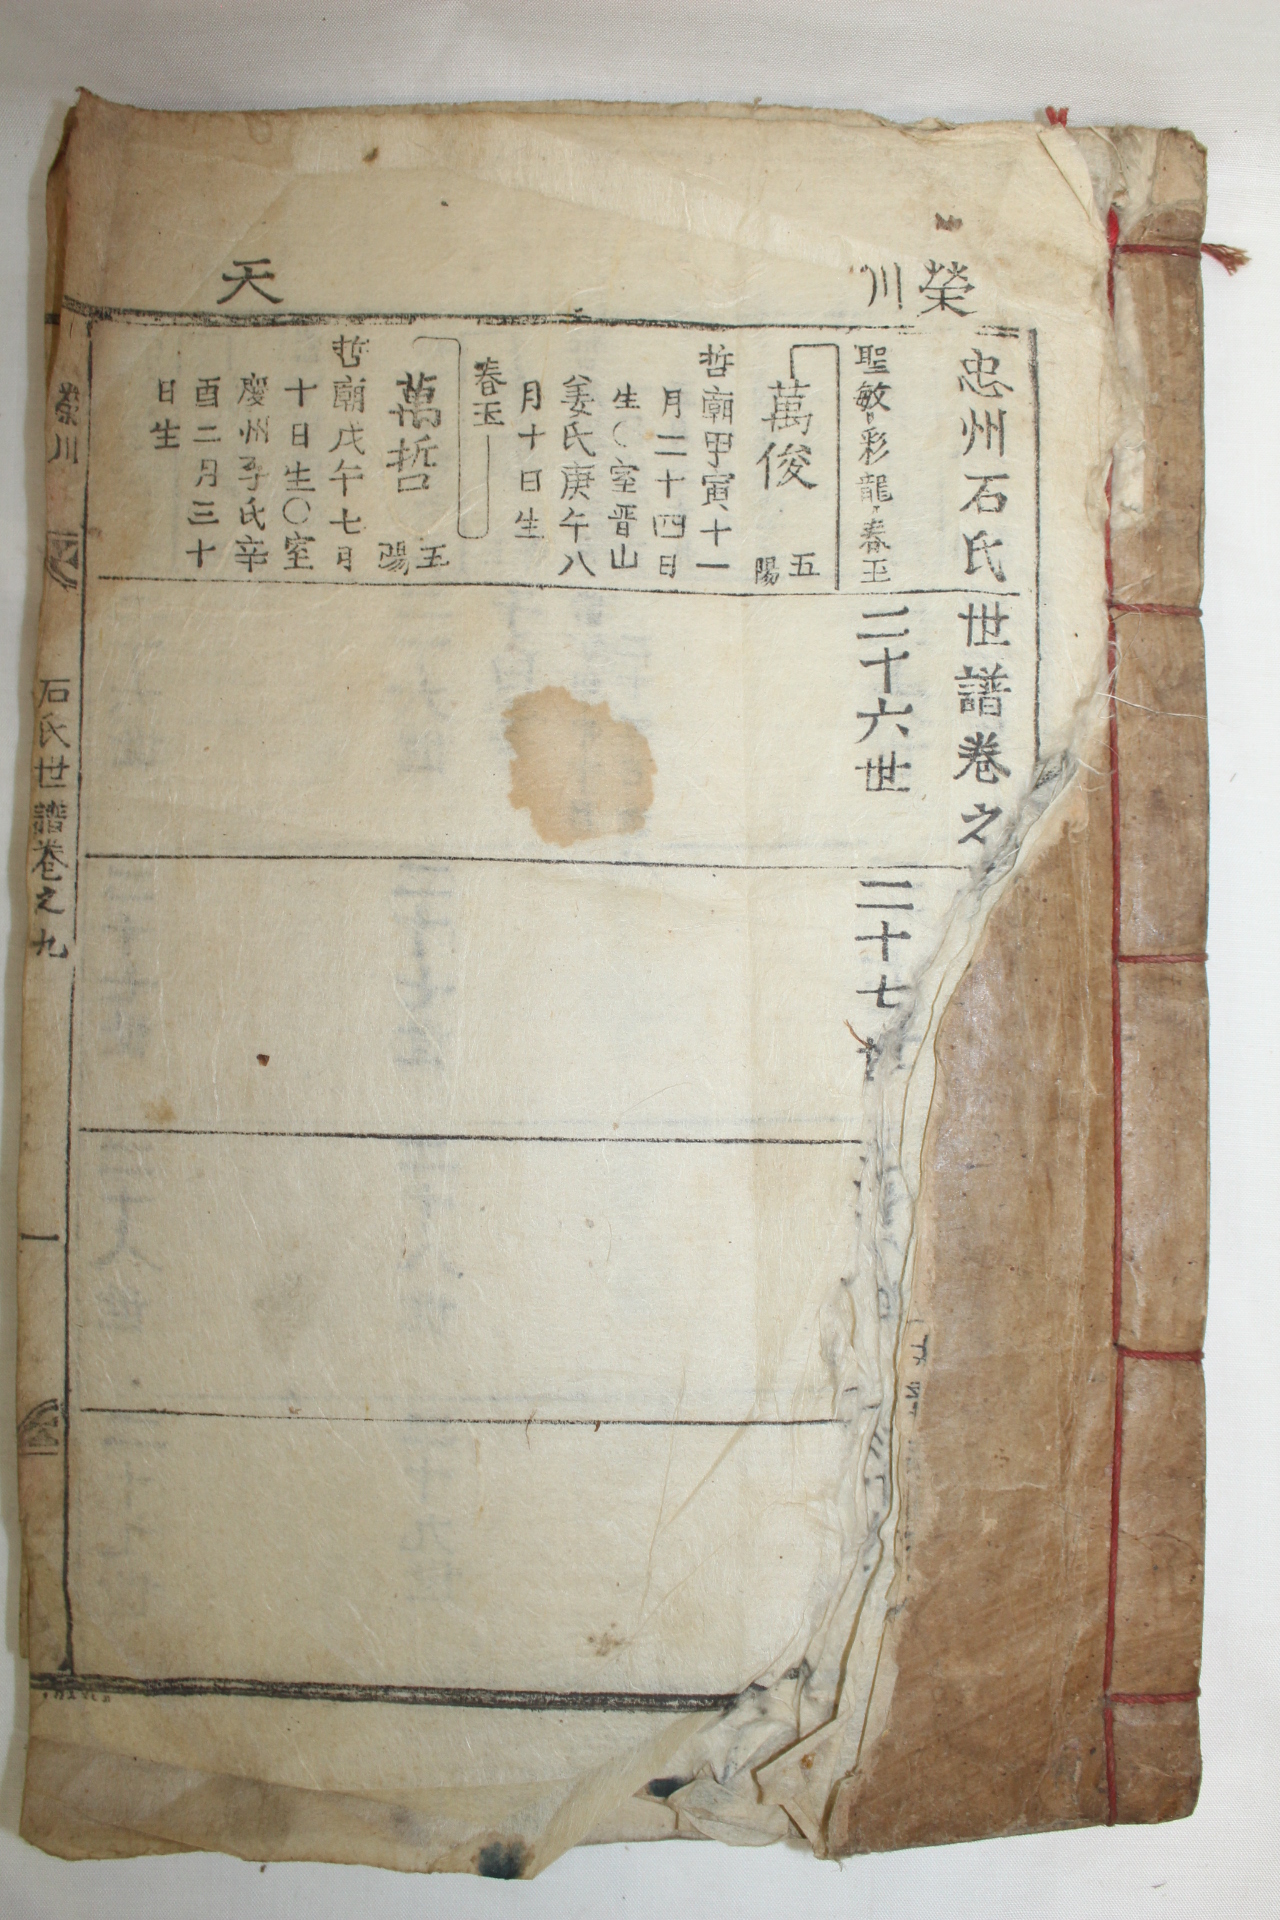 榮
川
天
忠州石氏世譜卷之
聖敏-彩龍-春玉
二十六世
二十七
萬俊
五
陽
哲廟甲寅十一
月二十四日
生〇室晋山
姜氏庚午八
月十日生
春玉
萬哲
五
陽
哲廟戊午七月
十日生〇室
慶州李氏辛
酉二月三十
日生
榮川
石氏世譜卷之九
一